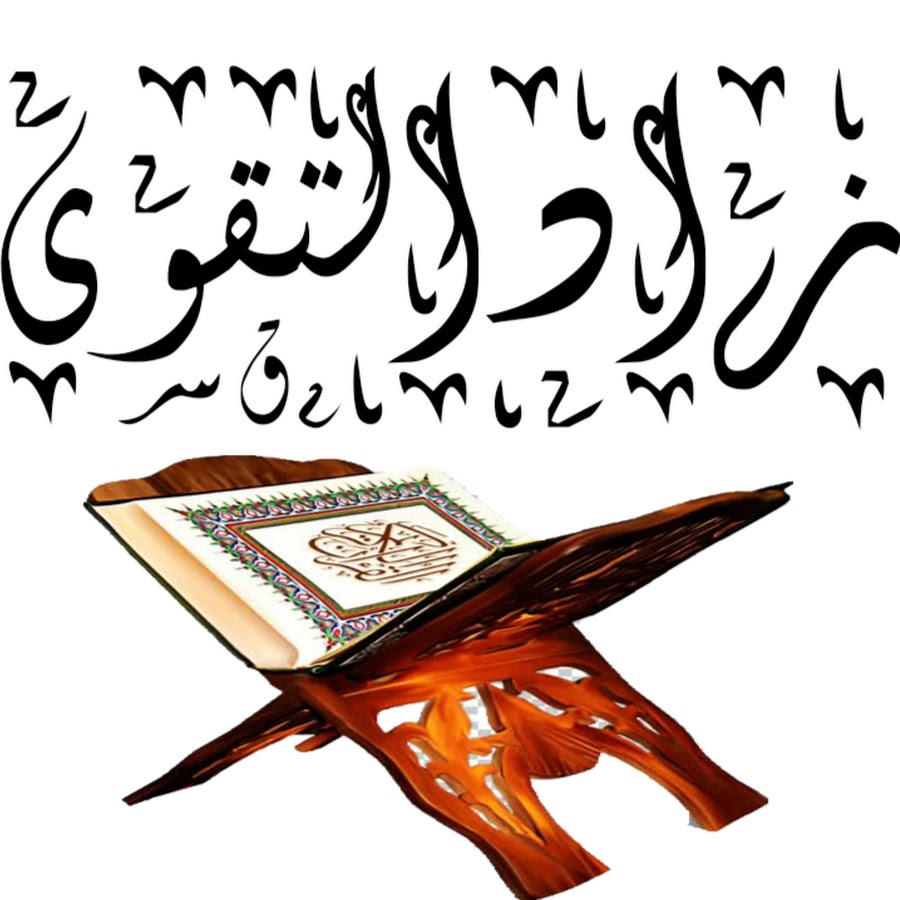 زاد التقوى